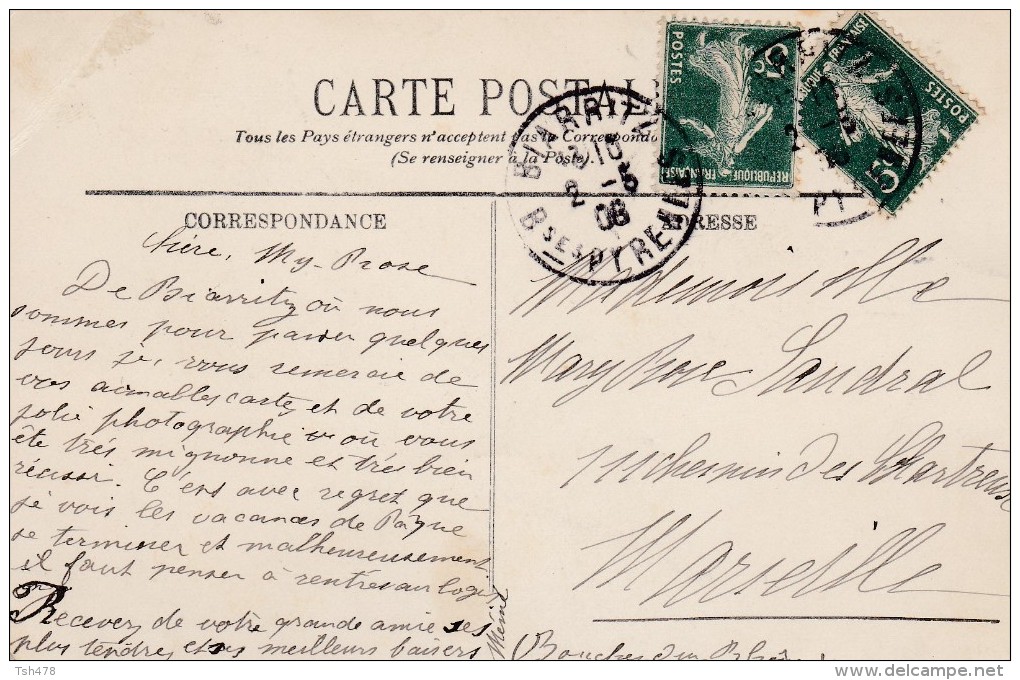 CARTE POSTALE
Tous les Pays étrangers n'acceptent pas la Correspondance
(Se renseigner à la Poste).
BIARRITZ
2 - 5
08
BSES PYRENEES
POSTES
5c
REPUBLIQUE FRANÇAISE
FRANÇAISE
POSTES
5c
CORRESPONDANCE
ADRESSE
Chère, My-Rose
De Biarritz où nous
sommes pour passer quelques
jours je, vous remercie de
vos aimables cartes et de votre
jolie photographie où vous
ête trés mignonne et trés bien
réussi. C ens avec regret que
je vois les vacances de Paque
se terminer et malheureusement
il faut penser à rentrés au logi
Recevez de votre grande amie ses
plus tendres et ses meilleurs baisers
Mademoiselle
Mary Rose Sendral
111 chemin des Chartreux
Marseille
(Bouches du Rhône)
Tsh478
www.delcampe.net